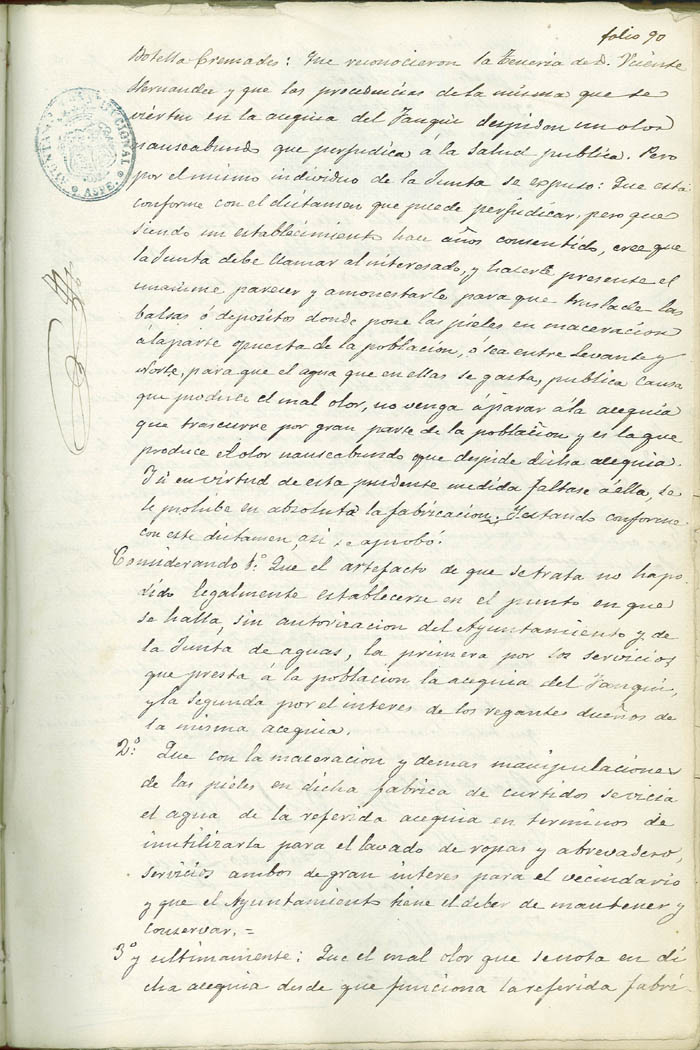 folio 90
Botella Cremades: Que reconocieron la Teneria de D. Vicente
Hernandez y que las procedencias de la misma que se
vierten en la acequia del Fauqui despiden un olor
nauseabundo que perjudica á la salud publica. Pero
por el mismo individuo de la Junta se expuso: Que está
conforme con el dictamen que puede perjudicar, pero que
siendo un establecimiento hace años consentido, cree que
la Junta debe llamar al interesado, y hacerle presente el
unanime parecer y amonestarle para que traslade las
balsas ó depósitos donde pone las pieles en maceracion
á la parte opuesta de la población, ó sea entre Levante y
Norte, para que el agua que en ellas se gasta, publica causa
que produce el mal olor, no venga á parar á la acequia
que trascurre por gran parte de la poblacion y es la que
produce el olor nauseabundo que despide dicha acequia.
Y si en virtud de esta prudente medida faltase á ella, se
le prohibe en absoluta la fabricacion. Y estando conforme
con este dictamen, asi se aprobó.
Considerando 1.º Que el artefacto de que se trata no ha po-
dido legalmente establecerse en el punto en que
se halla, sin autorizacion del Ayuntamiento y de
la Junta de aguas, la primera por los servicios
que presta á la poblacion la acequia del Fauqui,
y la segunda por el interes de los regantes dueños de
la misma acequia.
2.º Que con la maceracion y demas manipulaciones
de las pieles en dicha fabrica de curtidos se vicia
el agua de la referida acequia en terminos de
inutilizarla para el lavado de ropas y abrevadero,
servicios ambos de gran interes para el vecindario
y que el Ayuntamiento tiene el deber de mantener y
conservar. =
3º y ultimamente: Que el mal olor que se nota en di
cha acequia desde que funciona la referida fabri-
AYUNTAMIENTO CONSTITUCIONAL
* ASPE. *